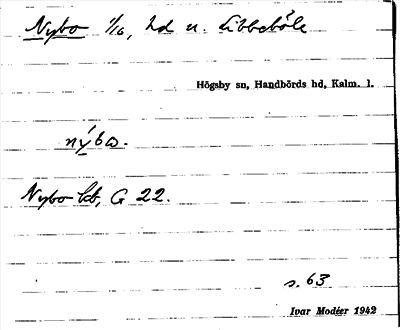 Nybo 1/16, hd u. Libbeböle
Högsby sn, Handbörds hd, Kalm. l.
nýbω.
Nybo kb, G 22.
s. 63
Ivar Modéer 1942